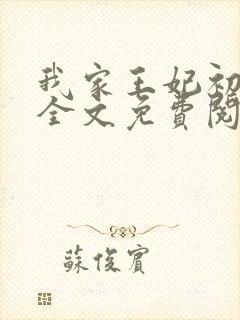 我家王妃初
全文免費閱
蘇俊賓